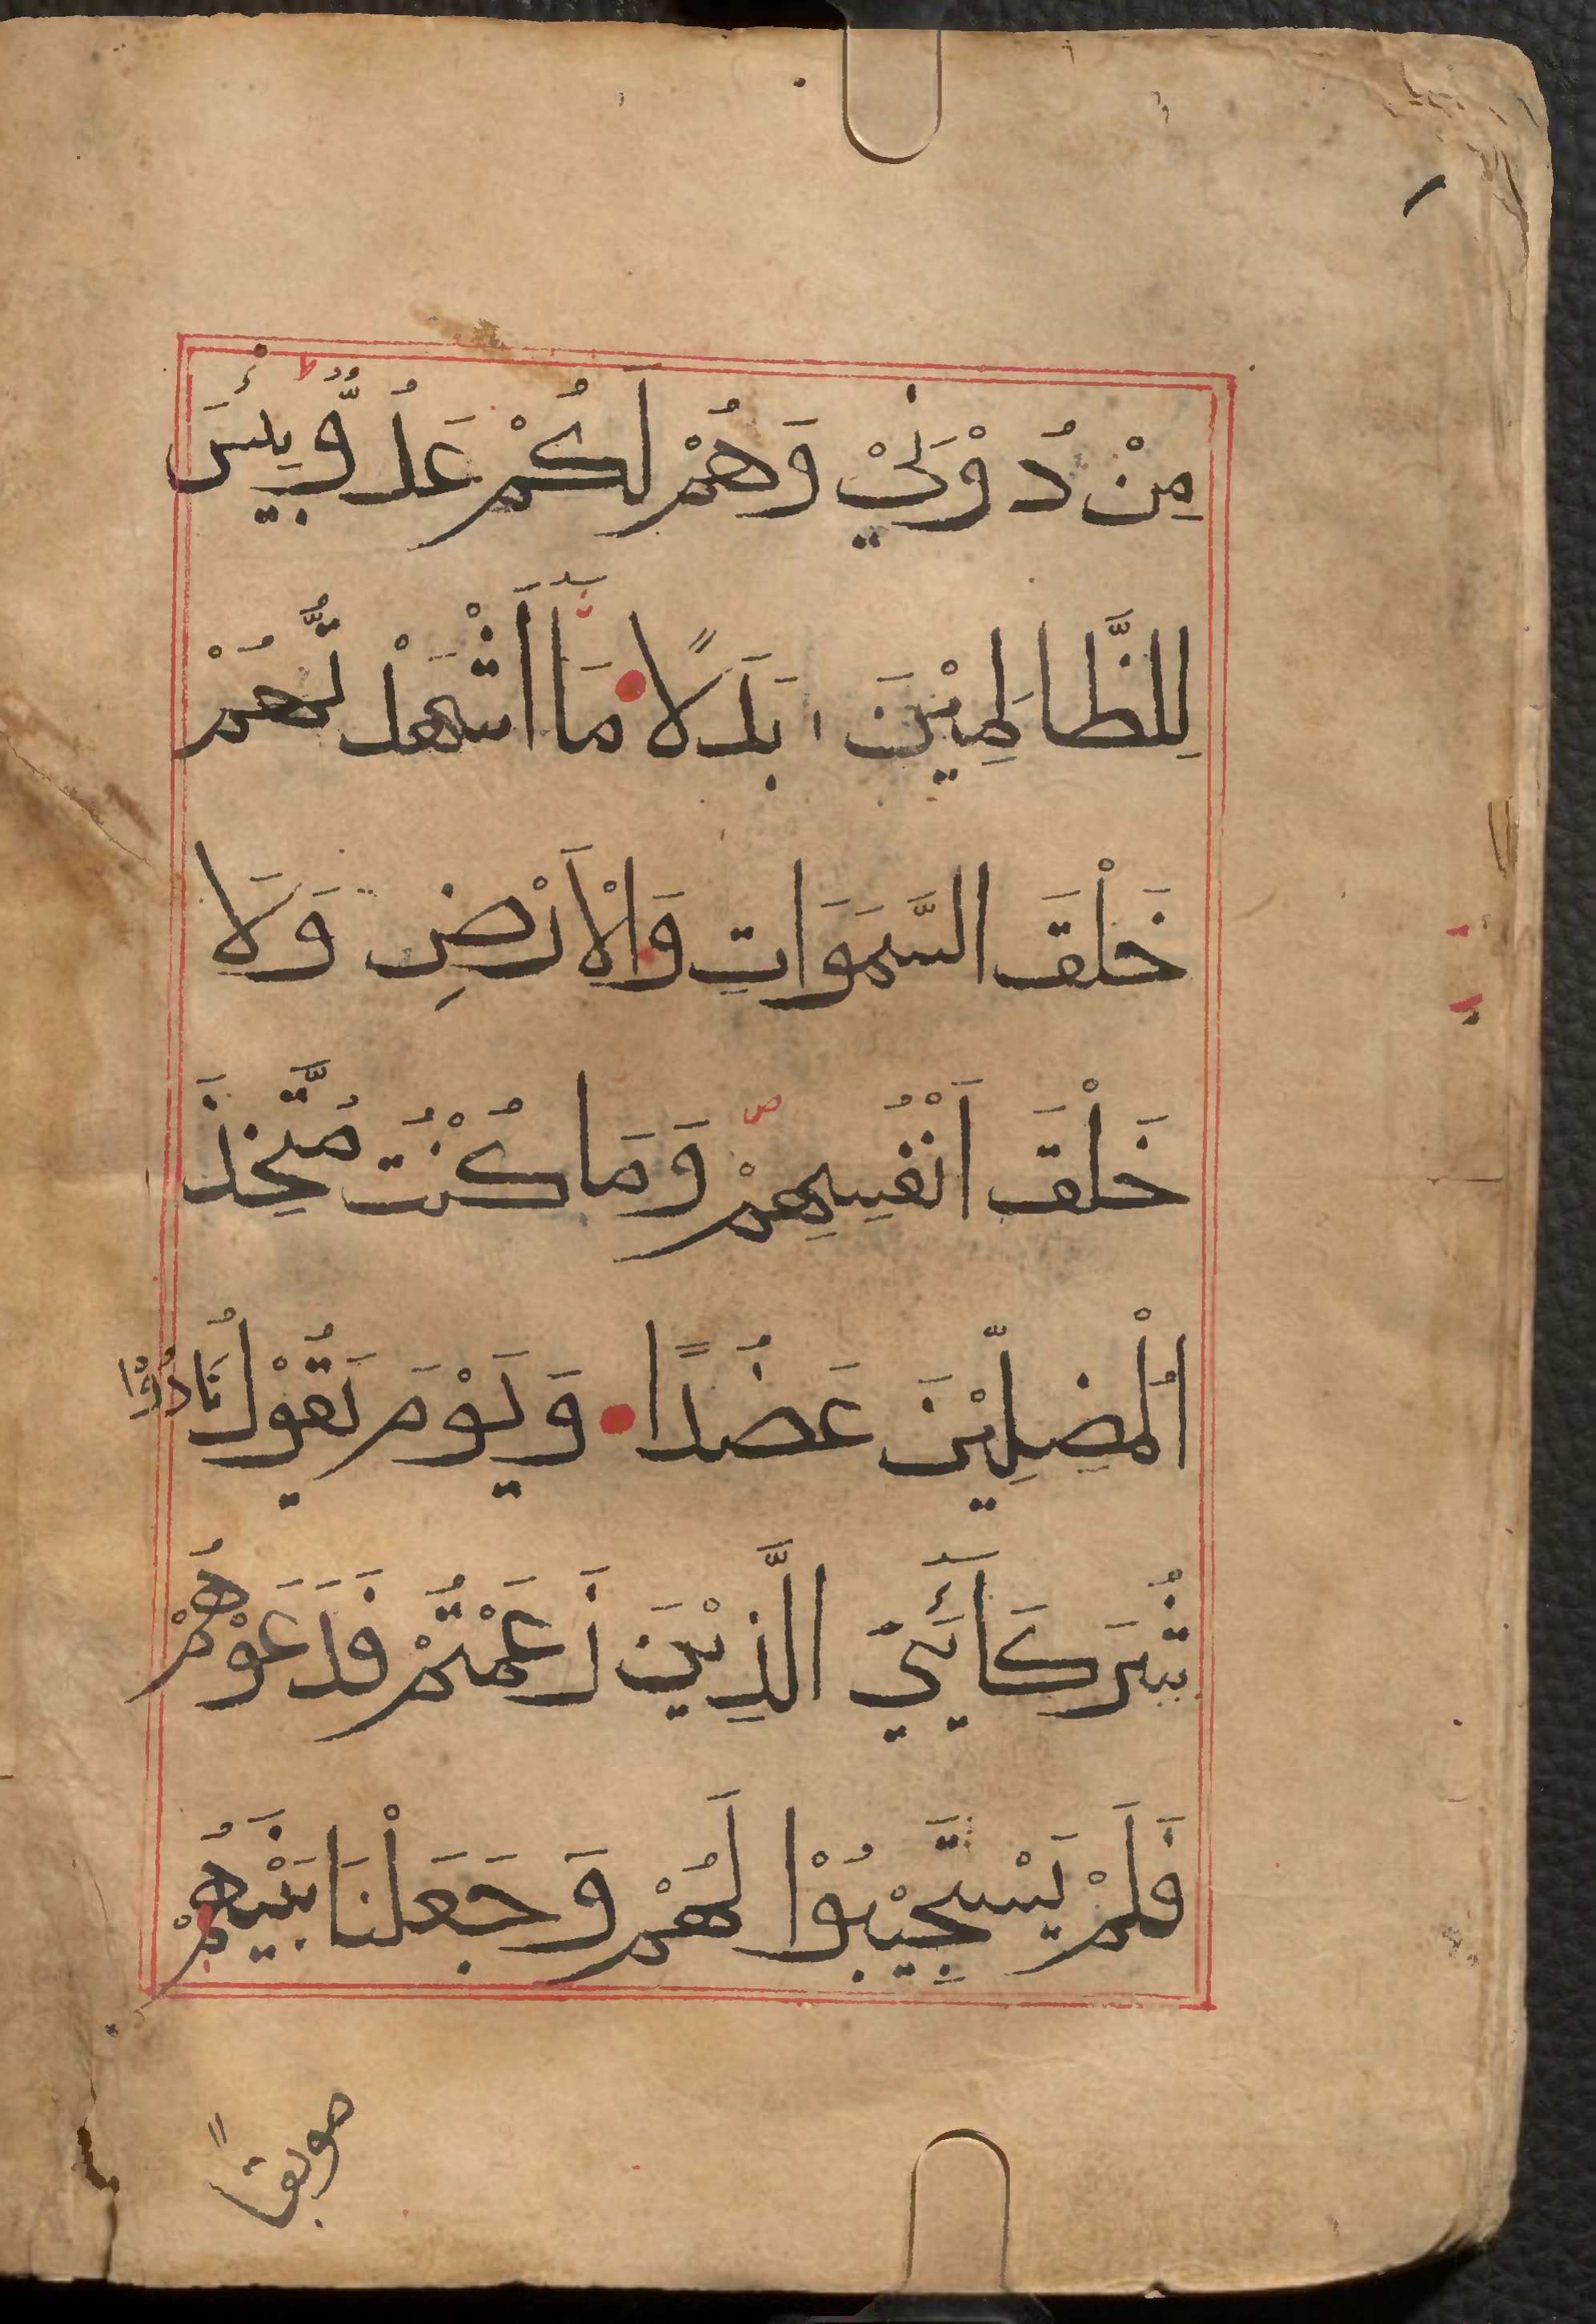 مِنْ دُوْنِيْ وَهُمْ لَكُمْ عَدُوٌّ بِئْسَ
لِلظَّالِمِيْنَ بَدَلًا مَآ اَشْهَدْتُّهُمْ
خَلْقَ السَّمَوَاتِ وَالْاَرْضِ وَلَا
خَلْقَ اَنْفُسِهِمْ وَمَا كُنْتُ مُتَّخِذَ
الْمُضِلِّيْنَ عَضُدًا وَيَوْمَ يَقُوْلُ نَادُوْا
شُرَكَآئِيَ الَّذِيْنَ زَعَمْتُمْ فَدَعَوْهُمْ
فَلَمْ يَسْتَجِيْبُوْا لَهُمْ وَجَعَلْنَا بَيْنَهُمْ
موبقًا